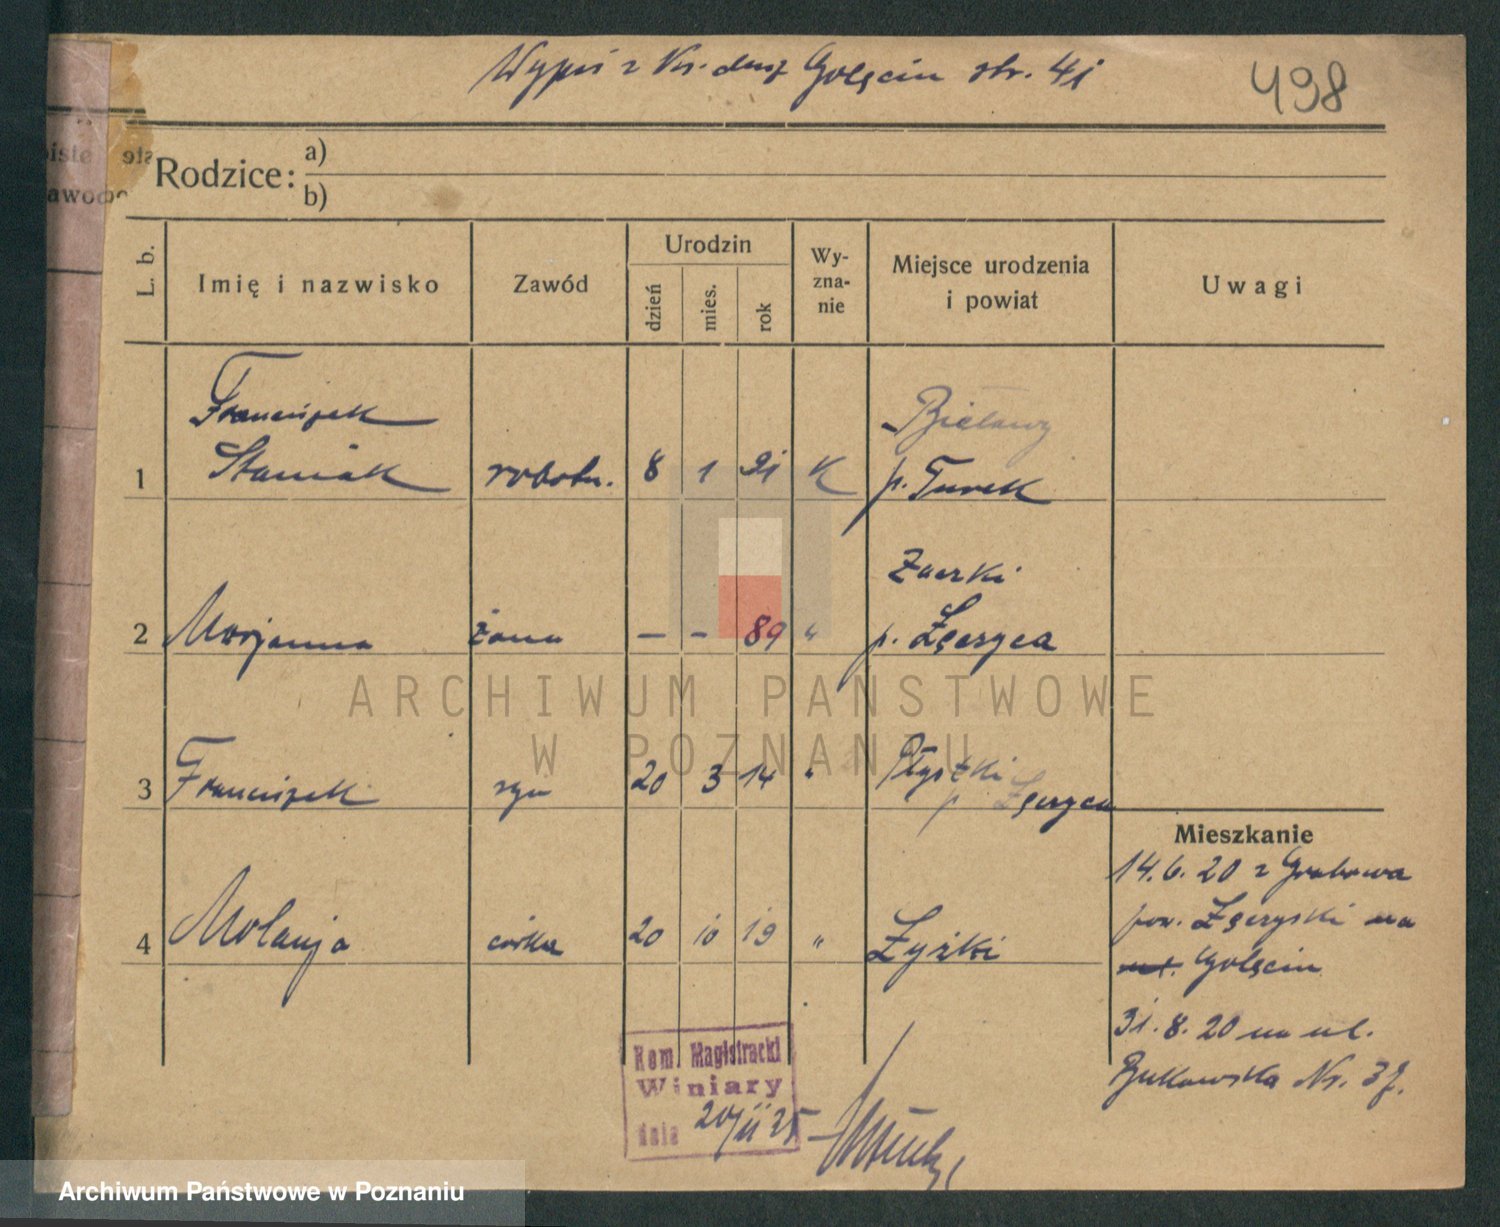 Wypis z Ks. dusz Golęcin str. 41
498
Rodzice:
a)
b)
L. b.
Imię i nazwisko
Zawód
Urodzin
dzień
mies.
rok
Wy-
zna-
nie
Miejsce urodzenia
i powiat
Uwagi
Franciszek
Staniak
Bielawy
1 robotn. 8 1 91 K p. Turek
2 Marjanna żona — - 89 "
p. Łęczyca
3 Franciszek syn 20 3 14 "
p Łęczyca
4 Melanja córka 20 10 19 " Łyżki
Mieszkanie
14.6.20 z Grabowa
pow. Łęczyski na
Golęcin
31.8.20 na ul.
Bukowska Nr. 37.
Kom. Magistracki
Winiary
dnia 20/II 25
ARCHIWUM PAŃSTWOWE
W POZNANIU
Archiwum Państwowe w Poznaniu